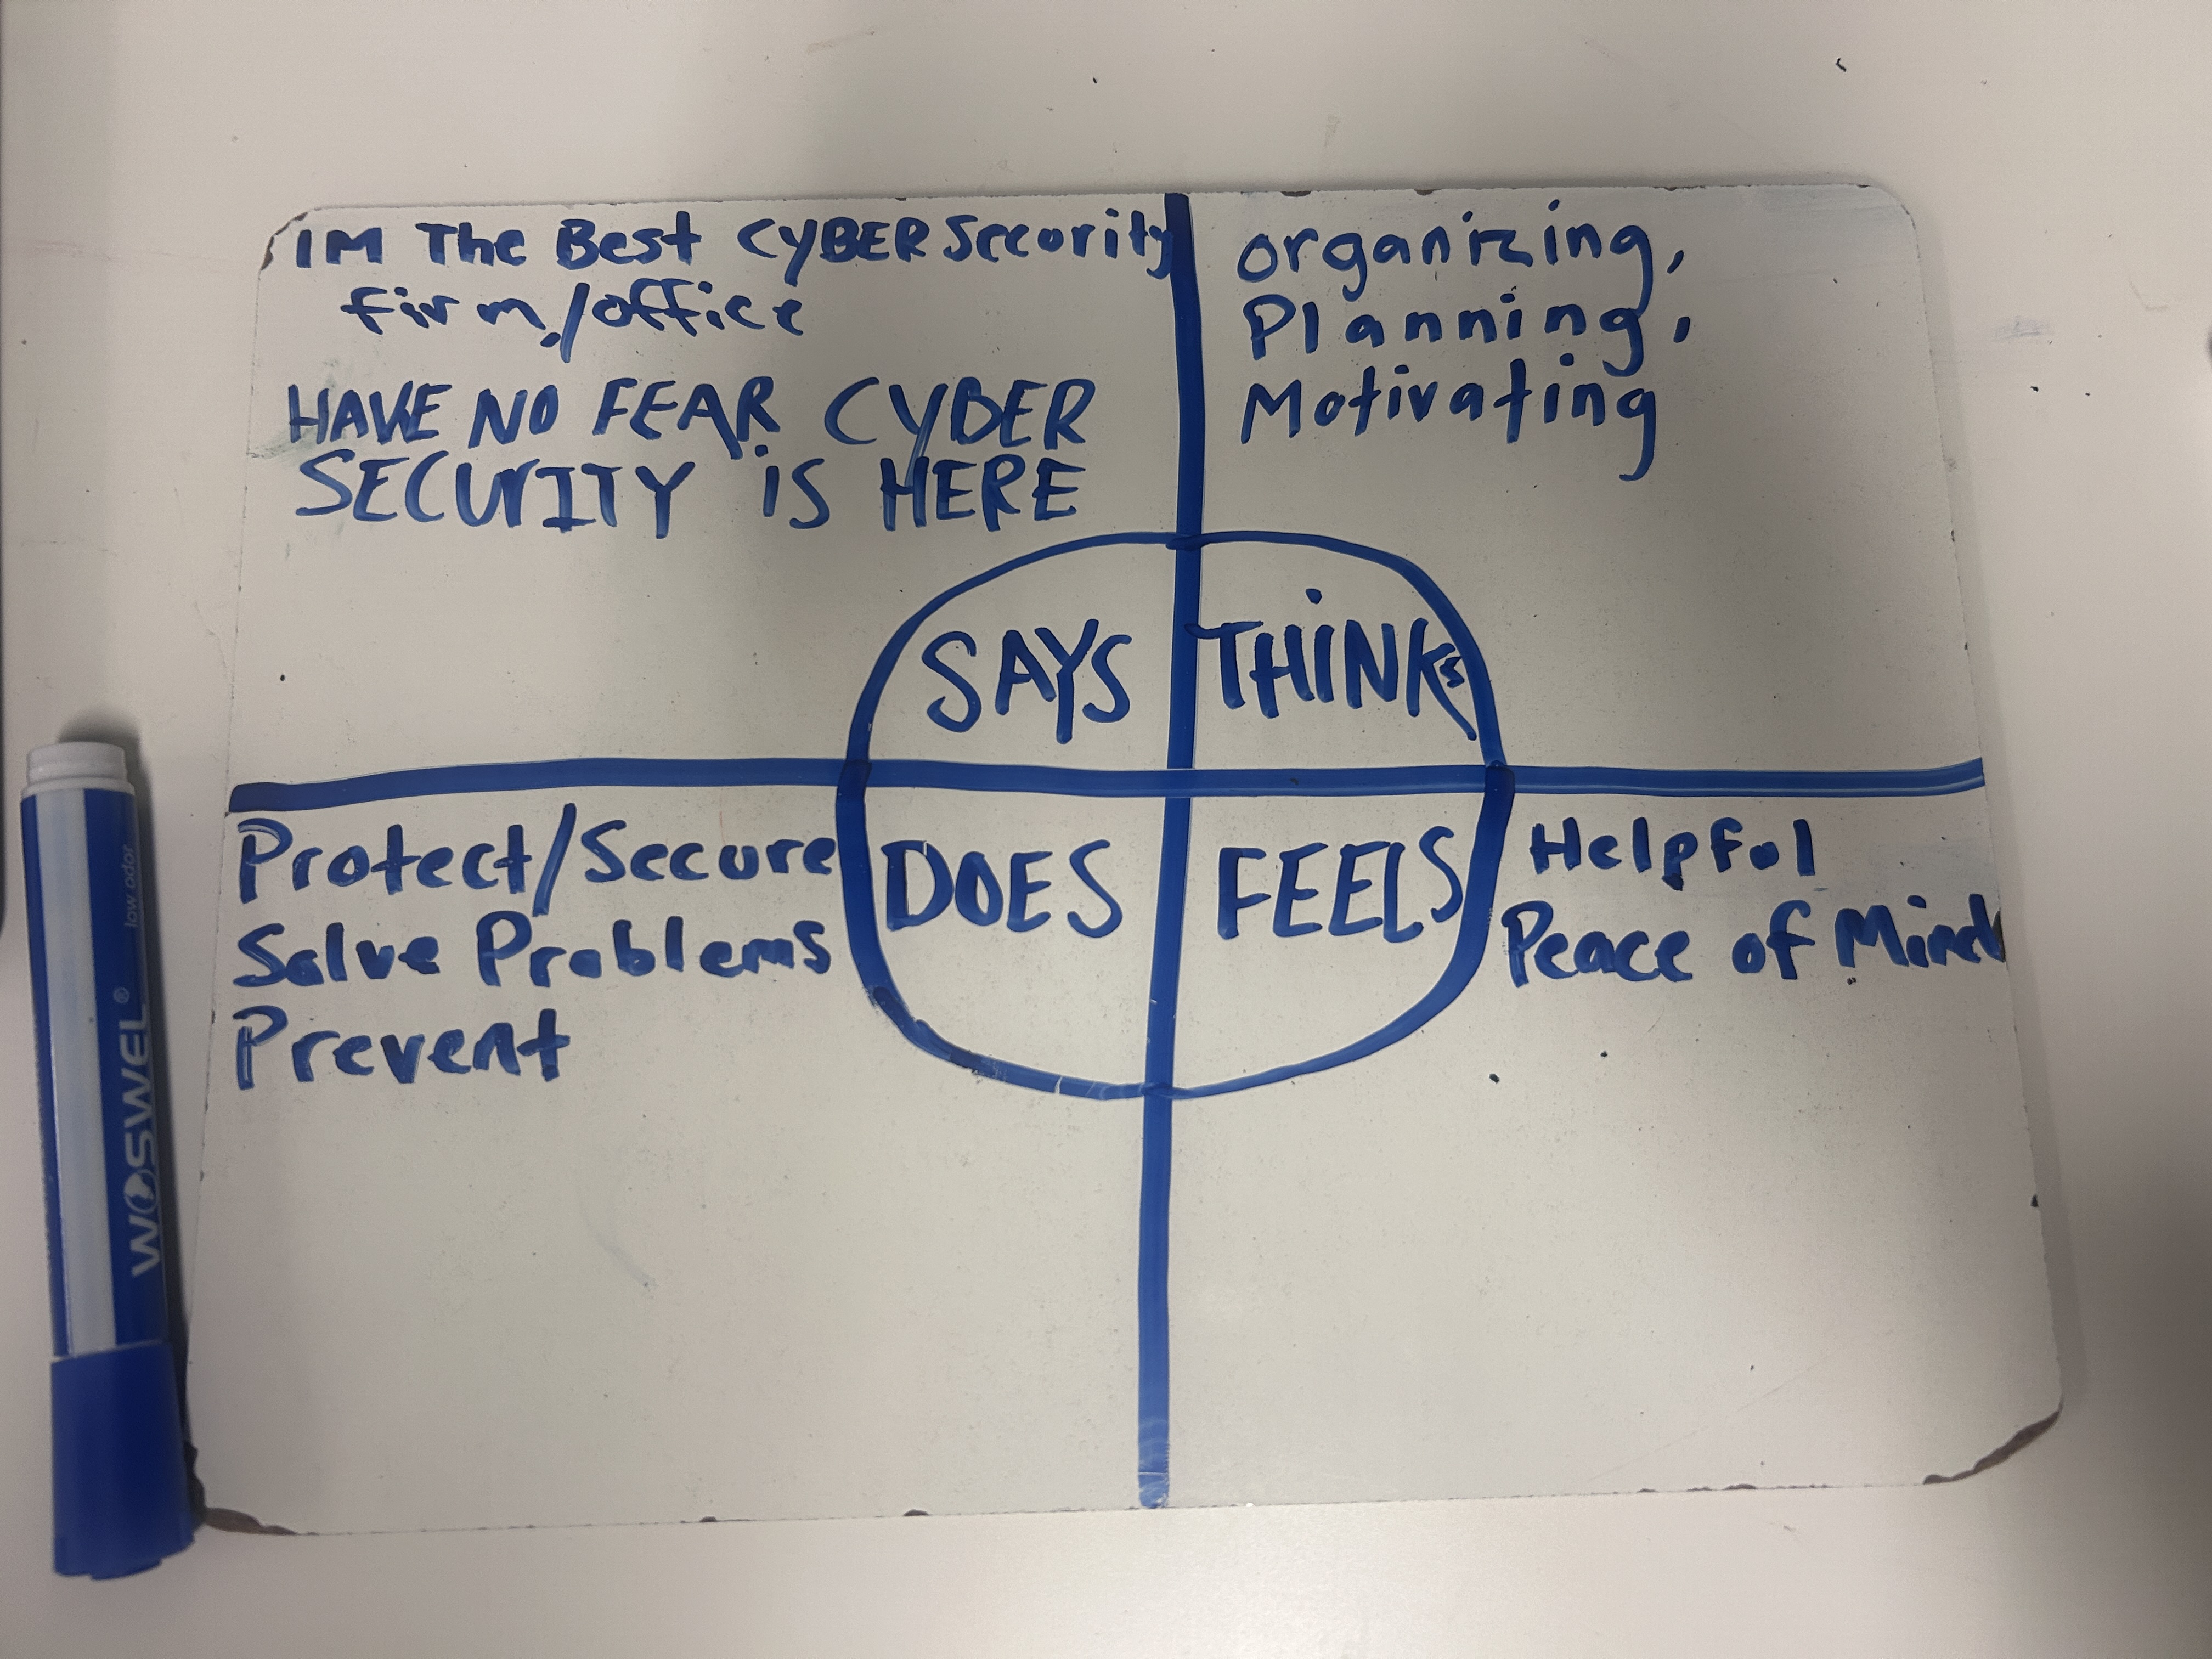 WOSWEL® low odor
IM The Best CYBER Security
firm./office
HAVE NO FEAR CYBER
SECURITY IS HERE
organizing,
Planning,
Motivating
SAYS
THINKs
DOES
FEELS
Protect/Secure
Solve Problems
Prevent
Helpful
Peace of Mind